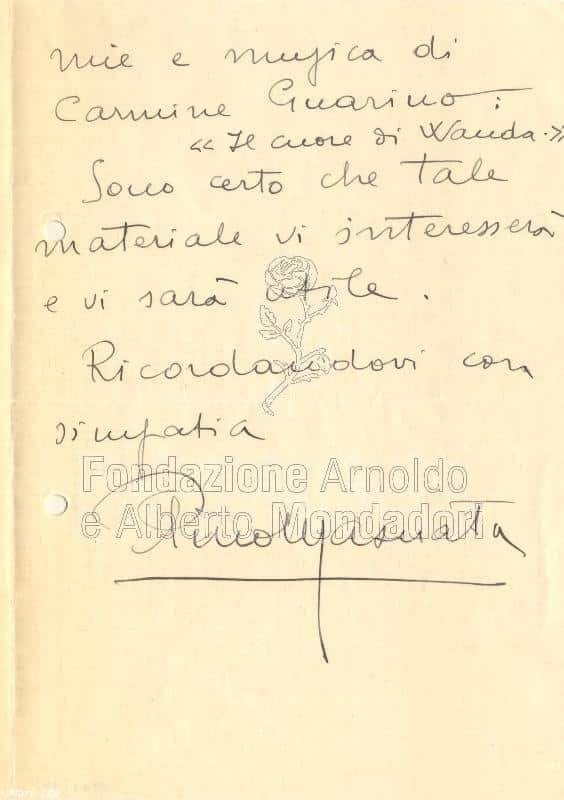 mie e musica di
Carmine Guarino:
« Il cuore di Wanda.»
Sono certo che tale
materiale vi interesserà
e vi sarà utile.
Ricordandovi con
simpatia
Fondazione Arnoldo
e Alberto Mondadori
Pino Masnata